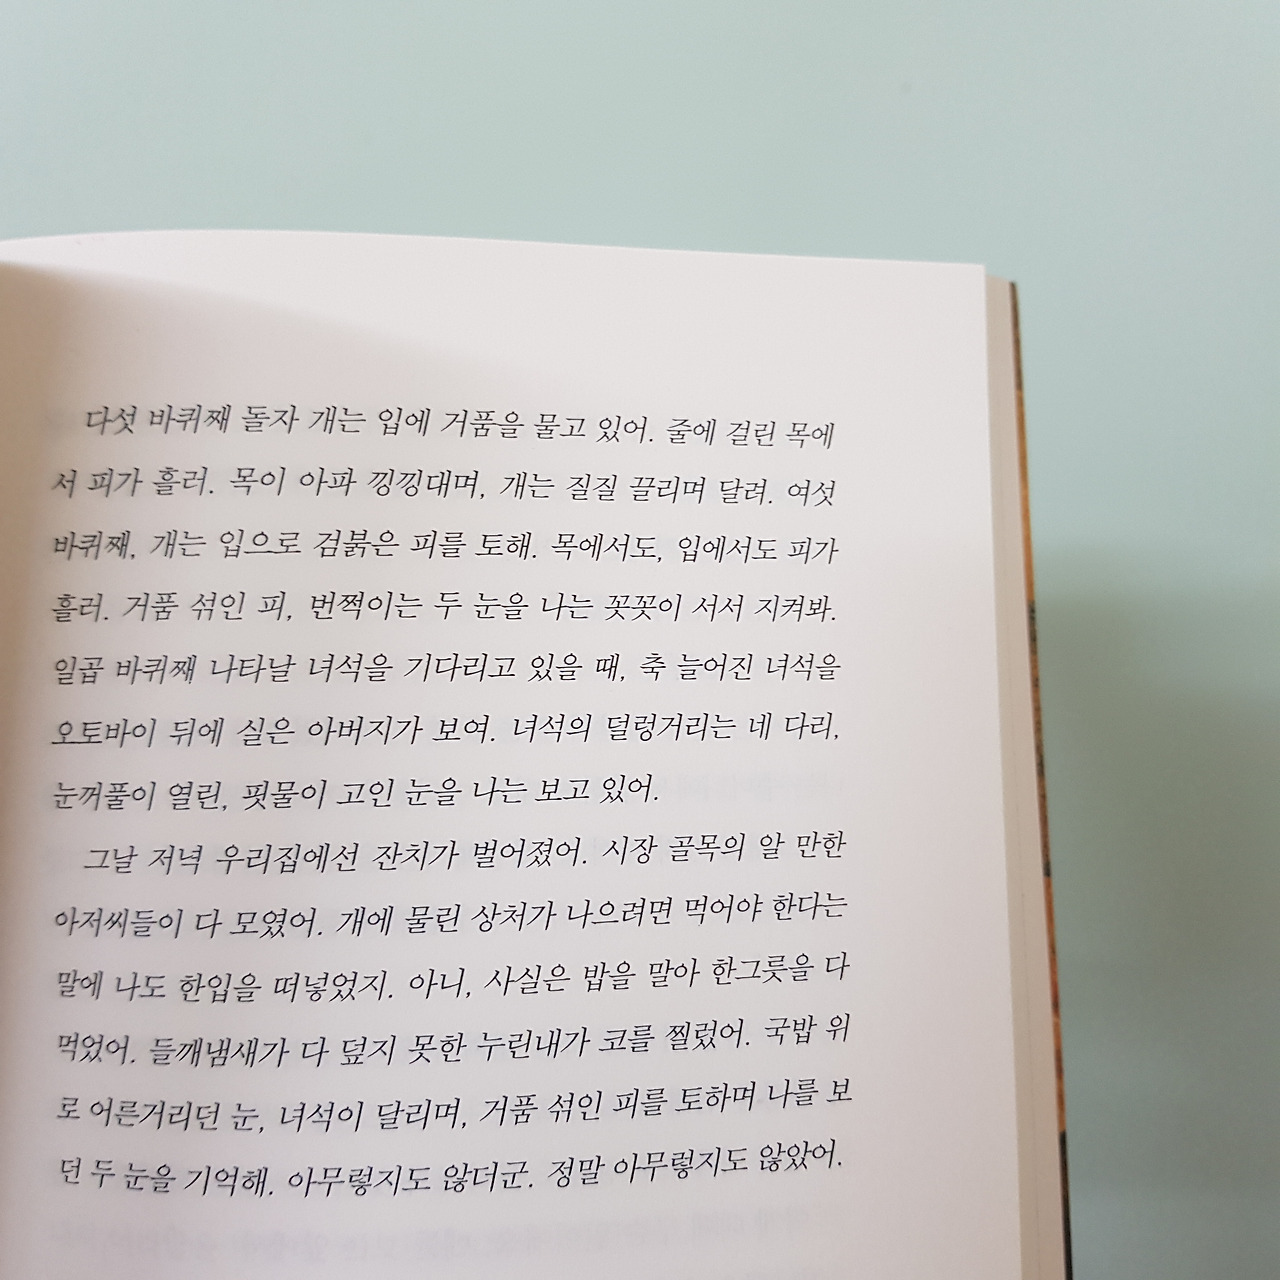 다섯 바퀴째 돌자 개는 입에 거품을 물고 있어. 줄에 걸린 목에
서 피가 흘러. 목이 아파 낑낑대며, 개는 질질 끌리며 달려. 여섯
바퀴째, 개는 입으로 검붉은 피를 토해. 목에서도, 입에서도 피가
흘러. 거품 섞인 피, 번쩍이는 두 눈을 나는 꼿꼿이 서서 지켜봐.
일곱 바퀴째 나타날 녀석을 기다리고 있을 때, 축 늘어진 녀석을
오토바이 뒤에 실은 아버지가 보여. 녀석의 덜렁거리는 네 다리,
눈꺼풀이 열린, 핏물이 고인 눈을 나는 보고 있어.
그날 저녁 우리집에선 잔치가 벌어졌어. 시장 골목의 알 만한
아저씨들이 다 모였어. 개에 물린 상처가 나으려면 먹어야 한다는
말에 나도 한입을 떠넣었지. 아니, 사실은 밥을 말아 한그릇을 다
먹었어. 들깨냄새가 다 덮지 못한 누린내가 코를 찔렀어. 국밥 위
로 어른거리던 눈, 녀석이 달리며, 거품 섞인 피를 토하며 나를 보
던 두 눈을 기억해. 아무렇지도 않더군. 정말 아무렇지도 않았어.